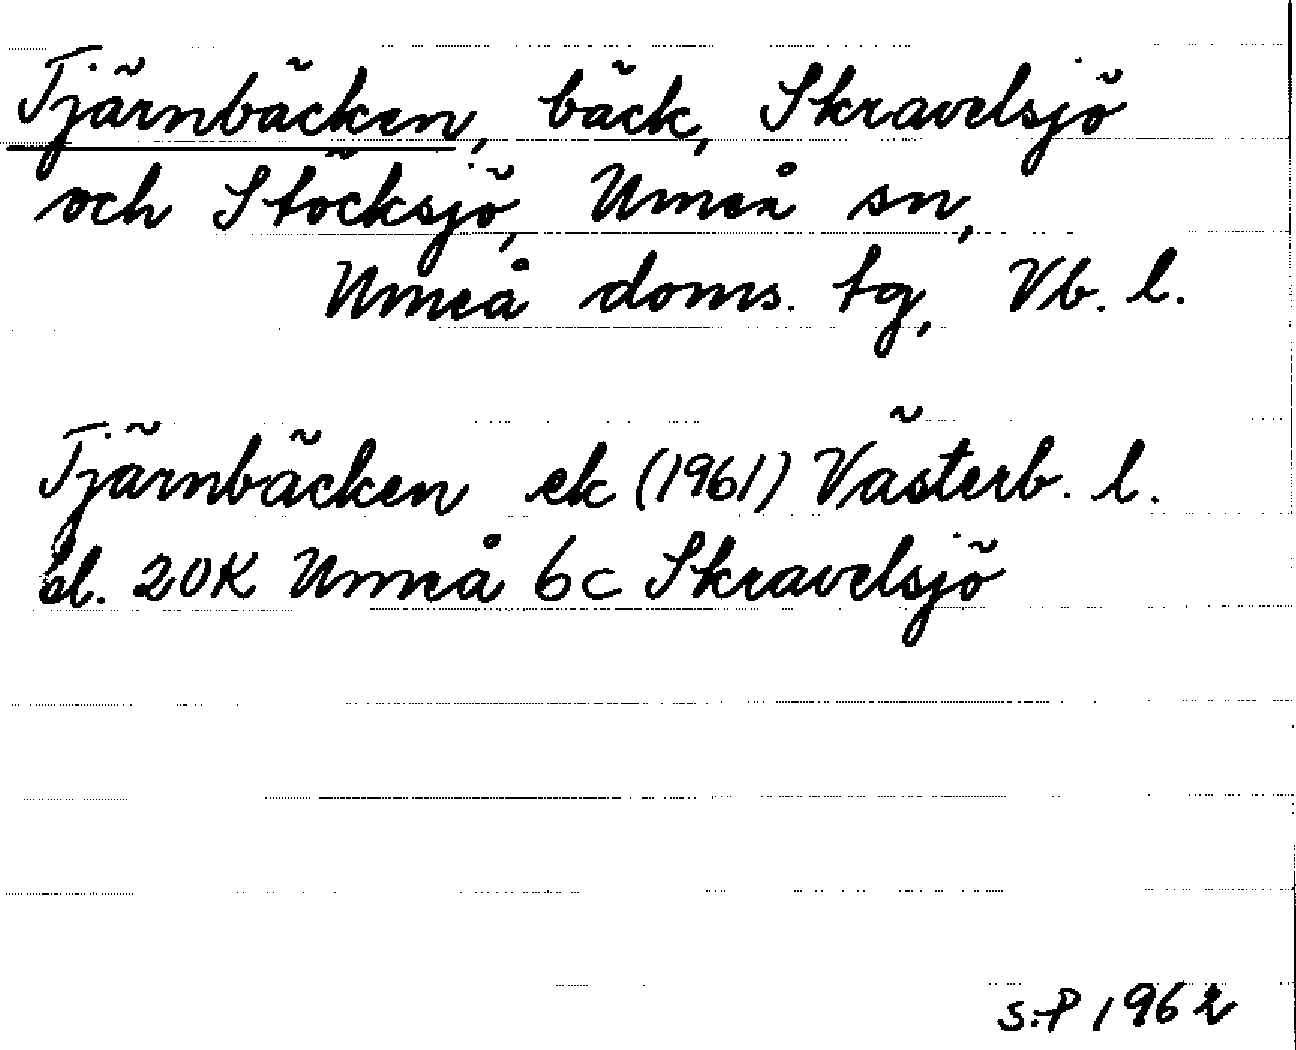 Tjärnbäcken, bäck, Skravelsjö
och Stöcksjö, Umeå sn,
Umeå doms. tg, Vb. l.
Tjärnbäcken ek (1961) Västerb. l.
bl. 20K Umeå 6c Skravelsjö
S.P 1962